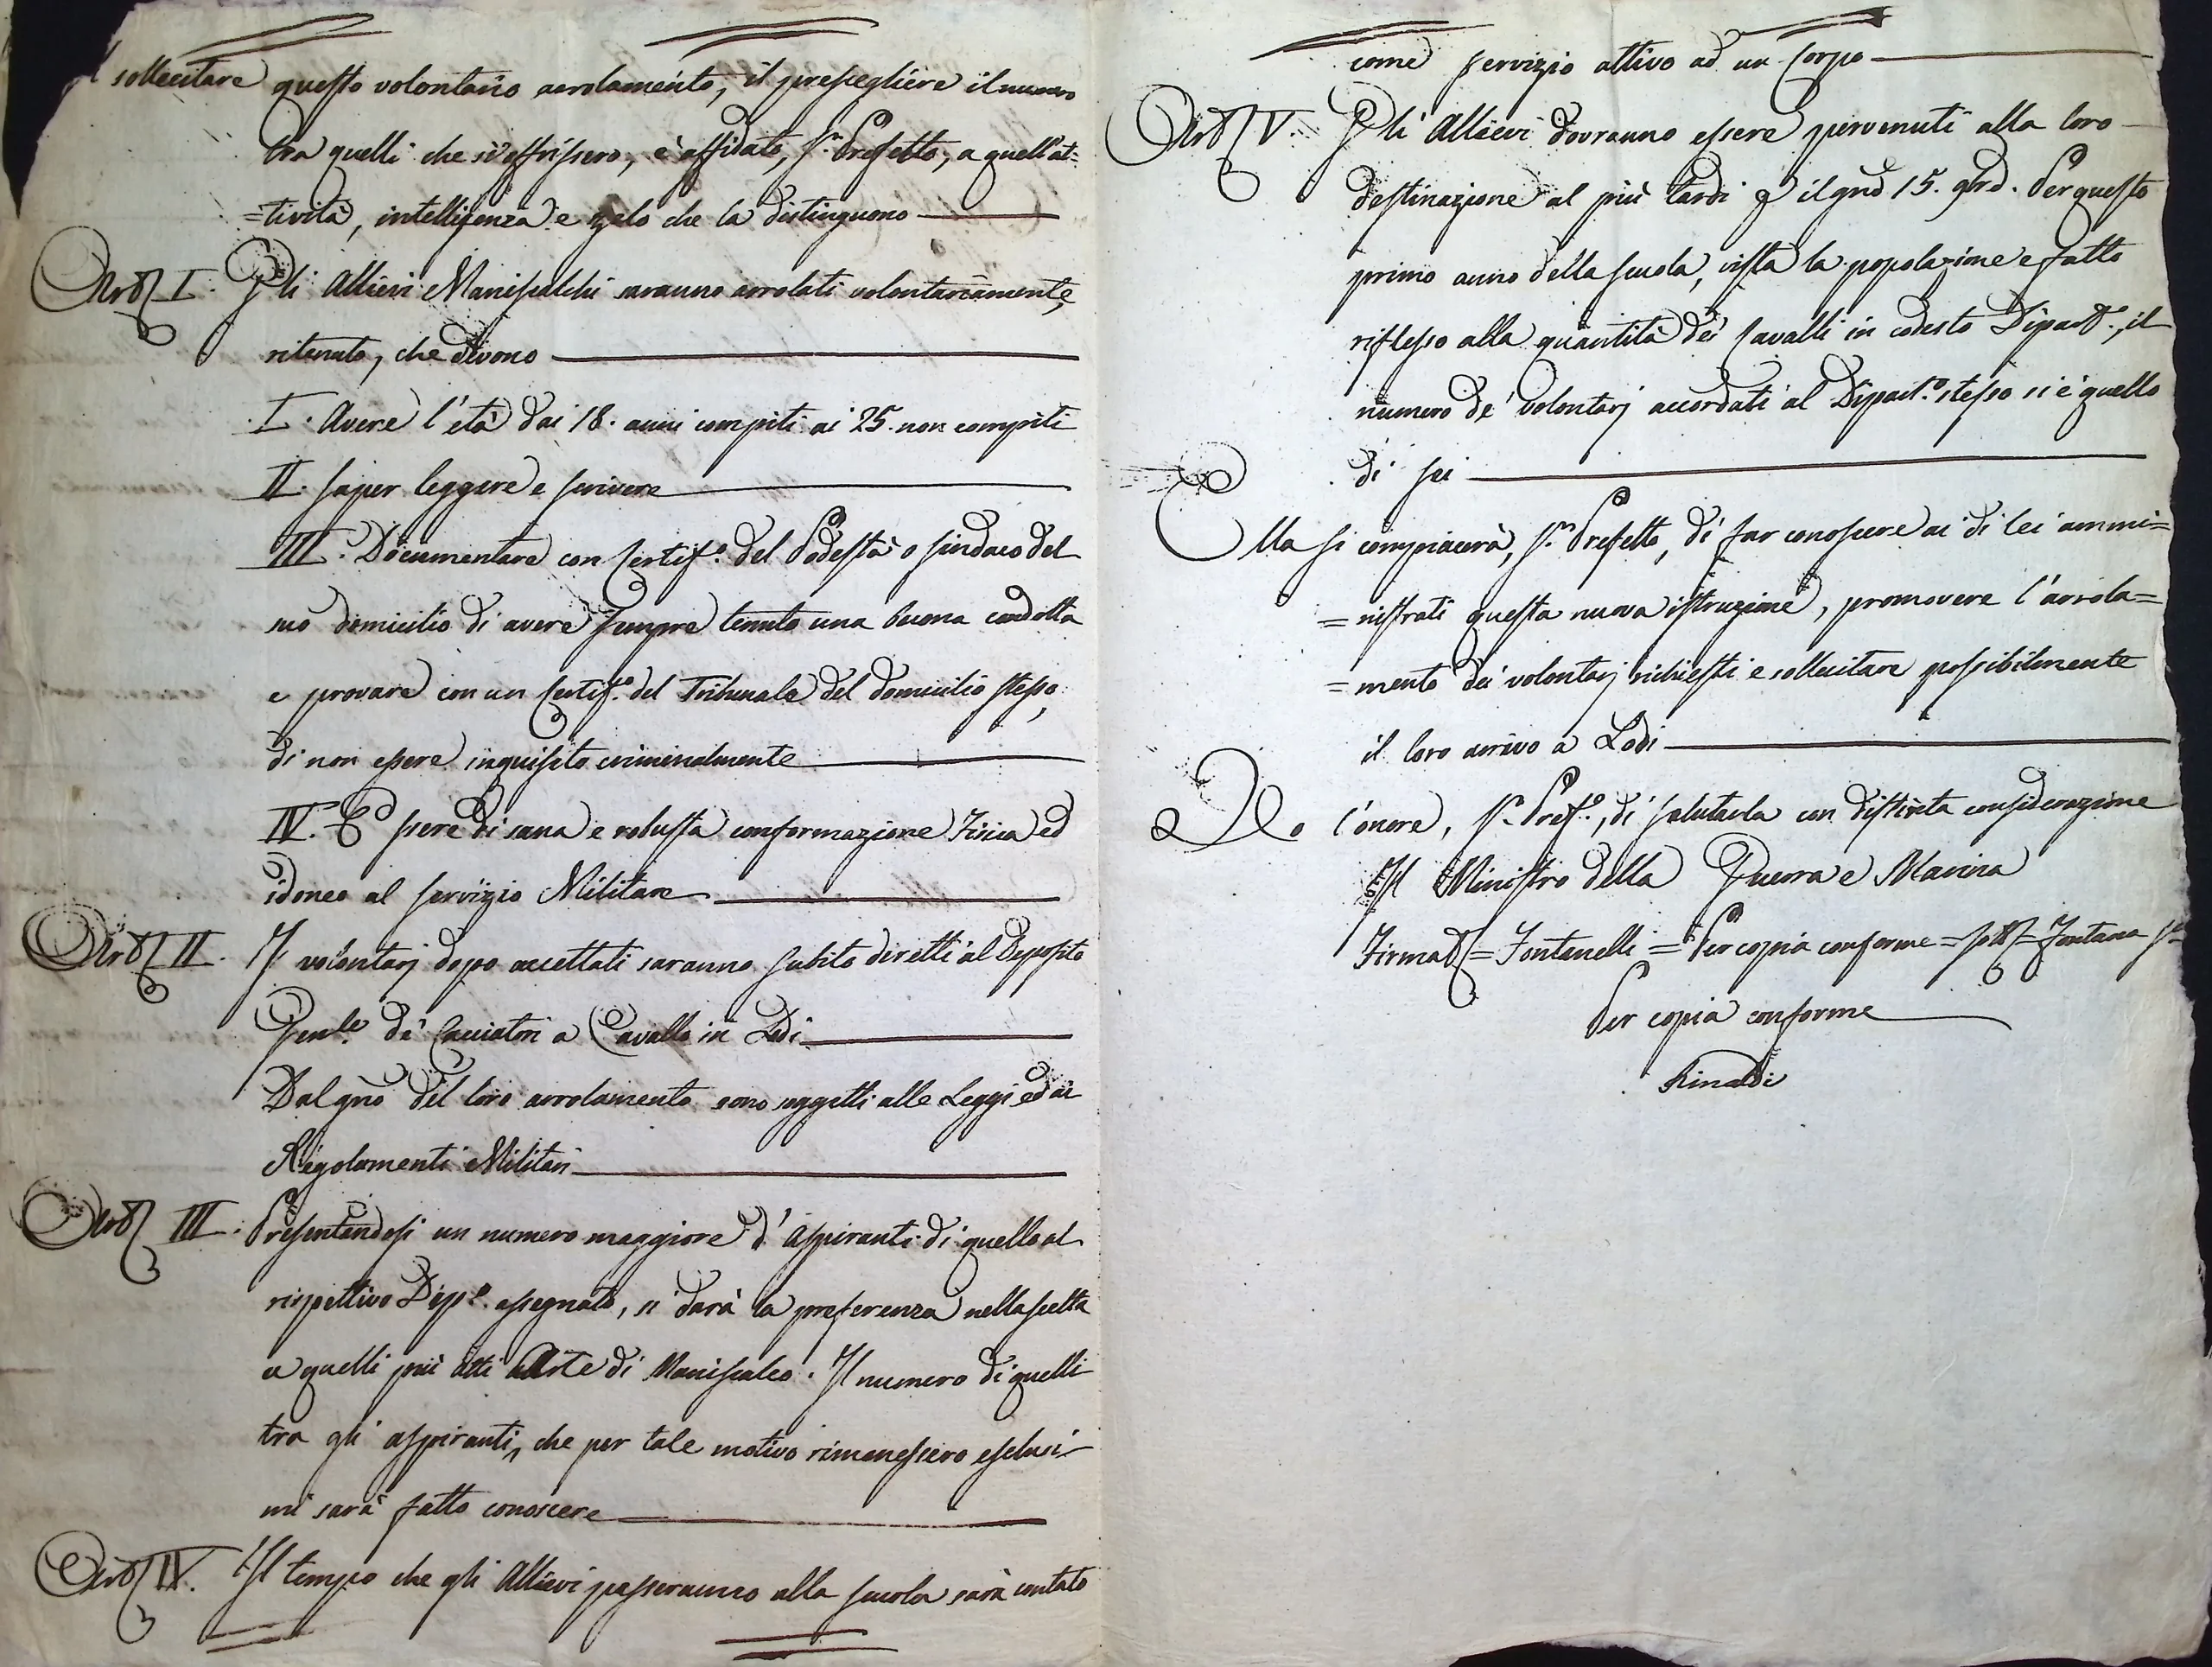 sollecitare questo volontario arrolamento, il prescegliere il numero
tra quelli che si offrissero, è affidato, Sr. Prefetto, a quell'at=
=tività, intelligenza e zelo che la distinguono
Art. I. Gli Allievi Maniscalchi saranno arrolati volontariamente,
ritenuto, che devono
I. Avere l'età dai 18. anni compiti ai 25. non compiti
II. Saper leggere e scrivere
III. Documentare con Certif.o del Podestà o Sindaco del
suo domicilio di avere sempre tenuto una buona condotta
e provare con un Certif.o del Tribunale del domicilio stesso,
di non essere inquisito criminalmente
IV. Essere di sana e robusta conformazione Fisica ed
idoneo al servizio Militare
Art. II. I volontarj dopo accettati saranno subito diretti al Deposito
Gen.le de' Cacciatori a Cavallo in Lodi
Dal gno del loro arrolamento sono soggetti alle Leggi ed ai
Regolamenti Militari
Art. III. Presentandosi un numero maggiore d'Aspiranti di quello al
rispettivo Dip.o assegnato, si darà la preferenza nella scelta
a quelli più atti all'Arte di Maniscalco. Il numero di quelli
tra gli aspiranti, che per tale motivo rimanessero esclusi
mi sarà fatto conoscere
Art. IV. Il tempo che gli Allievi passeranno alla scuola sarà contato
come servizio attivo ad un Corpo
Art. V. Gli Allievi dovranno essere pervenuti alla loro
destinazione al più tardi il gno 15. Per questo
primo anno della scuola, vista la popolazione e fatto
riflesso alla quantità dei Cavalli in codesto Dipart.o, il
numero de' volontarj accordati al Dipart.o stesso si è quello
di sei
Ella si compiacerà, Sr. Prefetto, di far conoscere ai di lei ammi=
=nistrati questa nuova istruzione, promovere l'arrola=
=mento dei volontarj richiesti e sollecitare possibilmente
il loro arrivo a Lodi
Ho l'onore, Sr. Pref.o, di salutarla con distinta considerazione
Il Ministro della Guerra e Marina
Firmat = Fontanelli = Per copia conforme = Sott = Fontana
Per copia conforme
Rinaldi